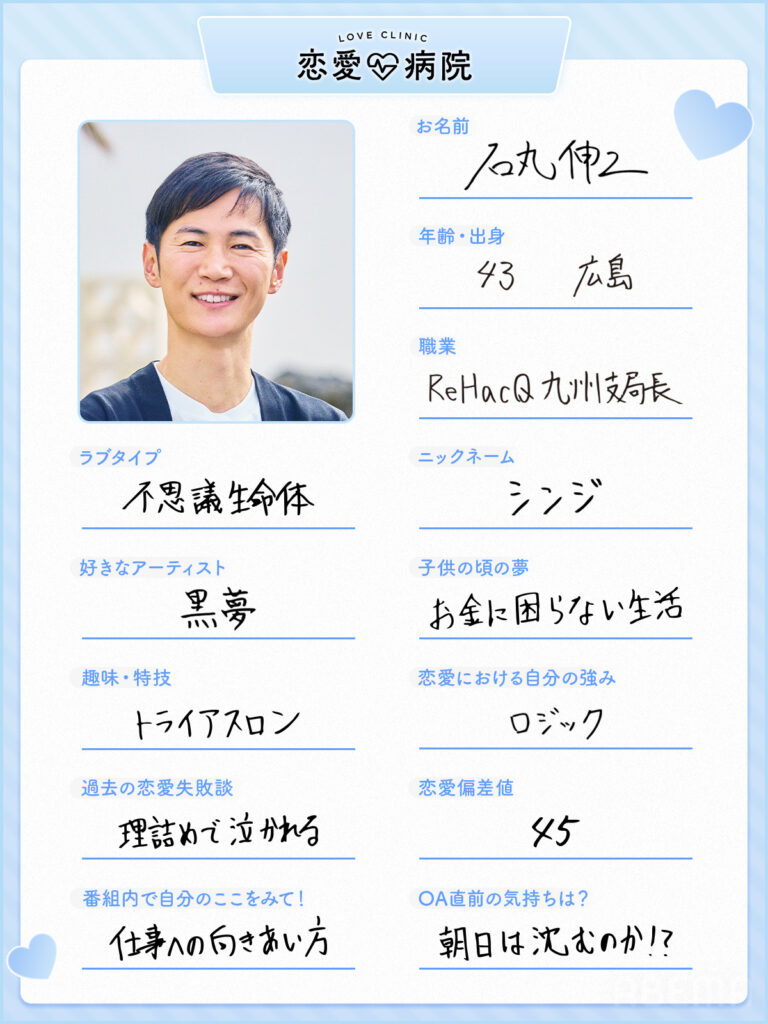 LOVE CLINIC
恋愛病院
お名前
石丸伸二
年齢・出身
43 広島
職業
ReHacQ 九州支局長
ラブタイプ
不思議生命体
ニックネーム
シンジ
好きなアーティスト
黒夢
子供の頃の夢
お金に困らない生活
趣味・特技
トライアスロン
恋愛における自分の強み
ロジック
過去の恋愛失敗談
理詰めで泣かれる
恋愛偏差値
45
番組内で自分のここをみて!
仕事への向きあい方
OA直前の気持ちは?
朝日は沈むのか!?
ABEMA